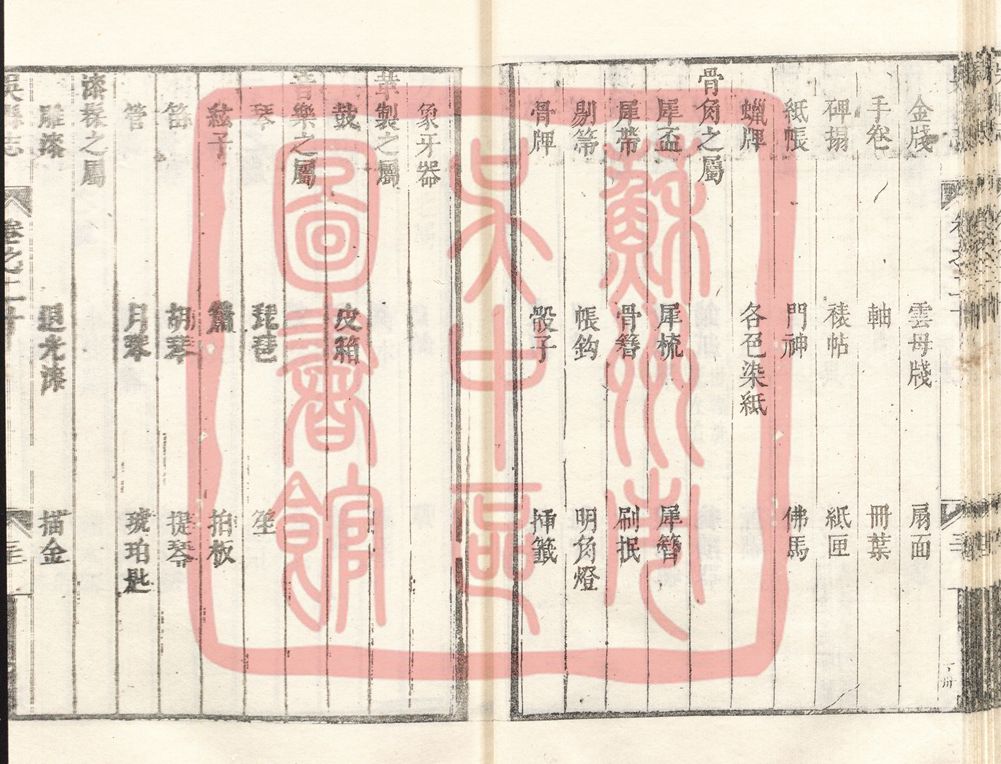 金牋 雲母牋 扇面
手卷 軸 冊葉
碑搨 裱帖 紙匣
紙帳 門神 佛馬
蠟牌 各色柒紙
骨角之屬
犀盃 犀梳 犀簪
犀帶 骨簪 刷抿
剔箒 帳鈎 明角燈
骨牌 骰子 揷籤
象牙器
革製之屬
鼓 皮箱
音樂之屬
琴 琵琶 笙
絃子 簫 拍板
胡琴 提琴
管 月琴 琥珀匙
漆髹之屬
雕漆 退光漆 描金
吳縣志 卷之二十
蘇州市
吳中區
圖書館